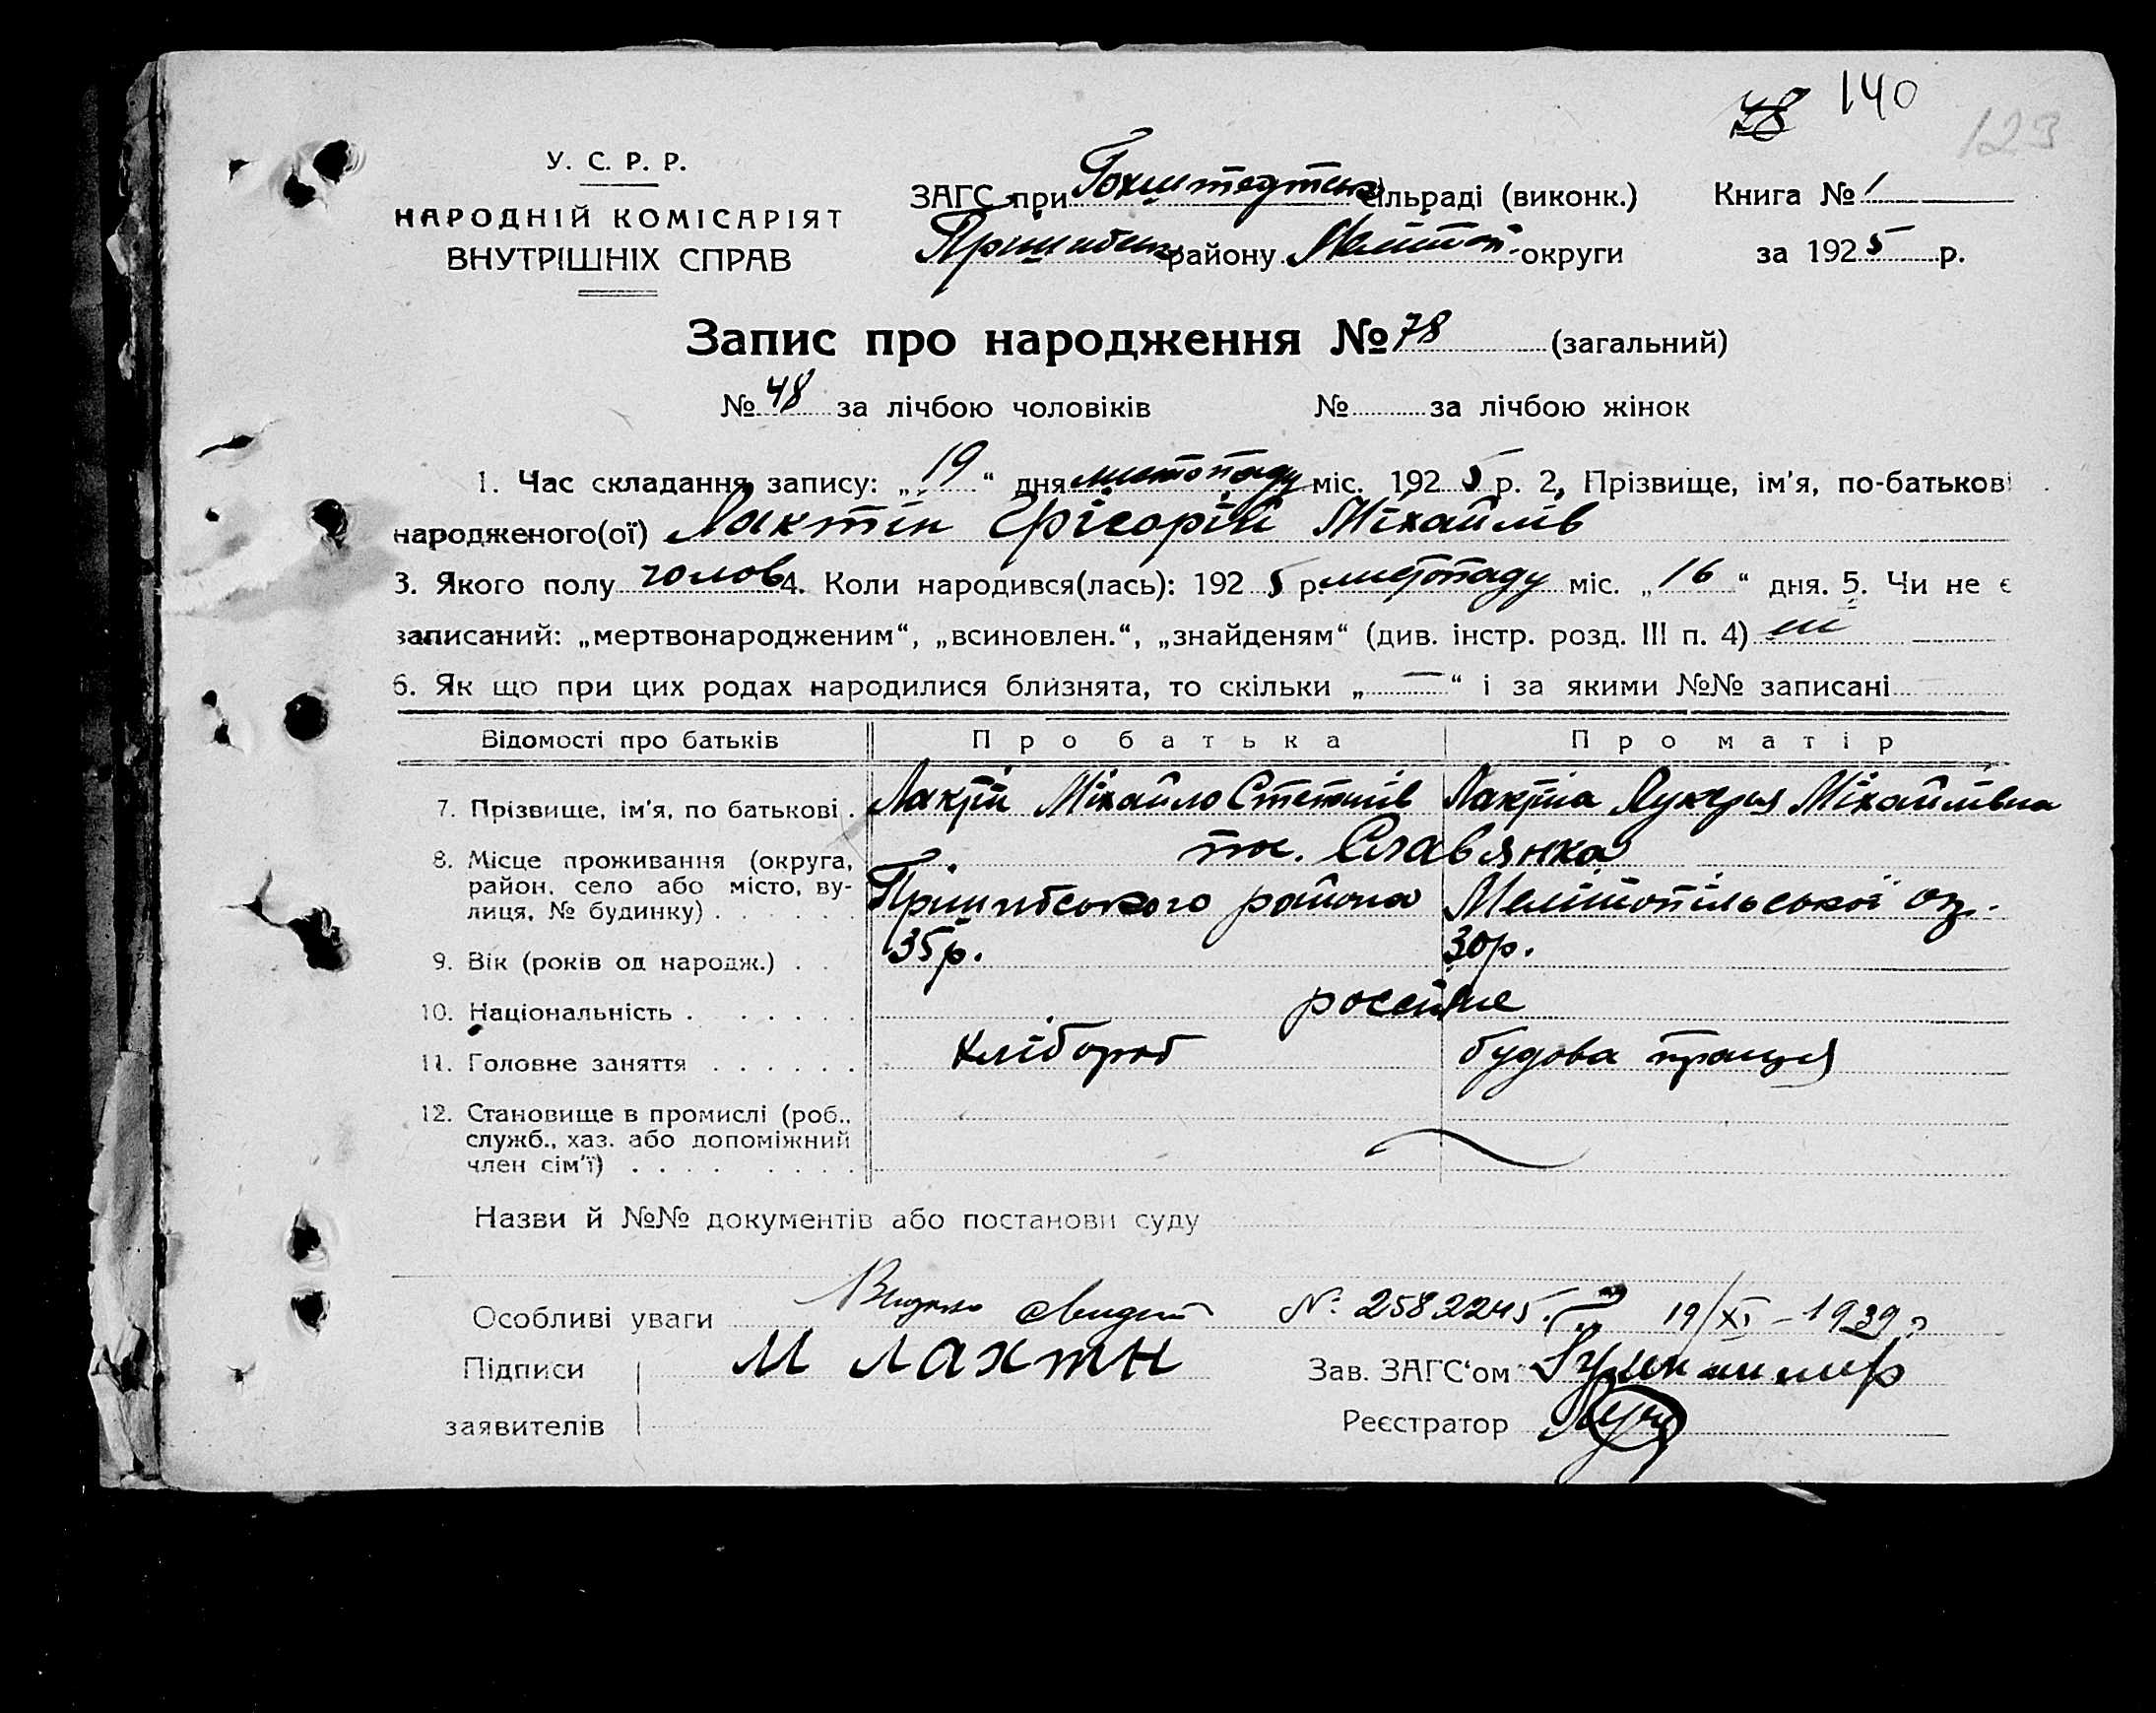 78 140
123
У. С. Р. Р.
НАРОДНІЙ КОМІСАРІЯТ
ВНУТРІШНІХ СПРАВ
ЗАГС при Гохштедтск сільраді (виконк.) Книга № 1
Пришибск району Мелітоп. округи за 1925 р.
Запис про народження № 78 (загальний)
№ 48 за лічбою чоловіків № за лічбою жінок
1. Час складання запису: „19“ дня листопаду міс. 1925 р. 2. Прізвище, ім'я, по-батькові
народженого(ої) Лактін Грігорій Міхайлів
3. Якого полу чолов 4. Коли народився(лась): 1925 р. листопаду міс. „16“ дня. 5. Чи не є
записаний: „мертвонародженим“, „всиновлен.“, „знайденям“ (див. інстр. розд. III п. 4) ні
6. Як що при цих родах народилися близнята, то скільки „—“ і за якими №№ записані
Відомості про батьків Про батька Про матір
7. Прізвище, ім'я, по батькові . Лактін Міхайло Степанів Лактіна Лукерья Міхайлівна
8. Місце проживання (округа, пос. Славянка
район, село або місто, ву-
лиця, № будинку) . . . . . . Прішибського района Мелітопільської ок.
9. Вік (років од народж.) . . 35 р. 30 р.
10. Національність . . . . . . . россіяне
11. Головне заняття . . . . . . хлібороб будова праця
12. Становище в промислі (роб.,
служб., хаз. або допоміжний
член сім'ї) . . . . . . . .
Назви й №№ документів або постанови суду
Особливі уваги Видано свидет № 2582245. 19/XI – 1939 г
Підписи М Лахтн Зав. ЗАГС'ом
заявителів Реєстратор